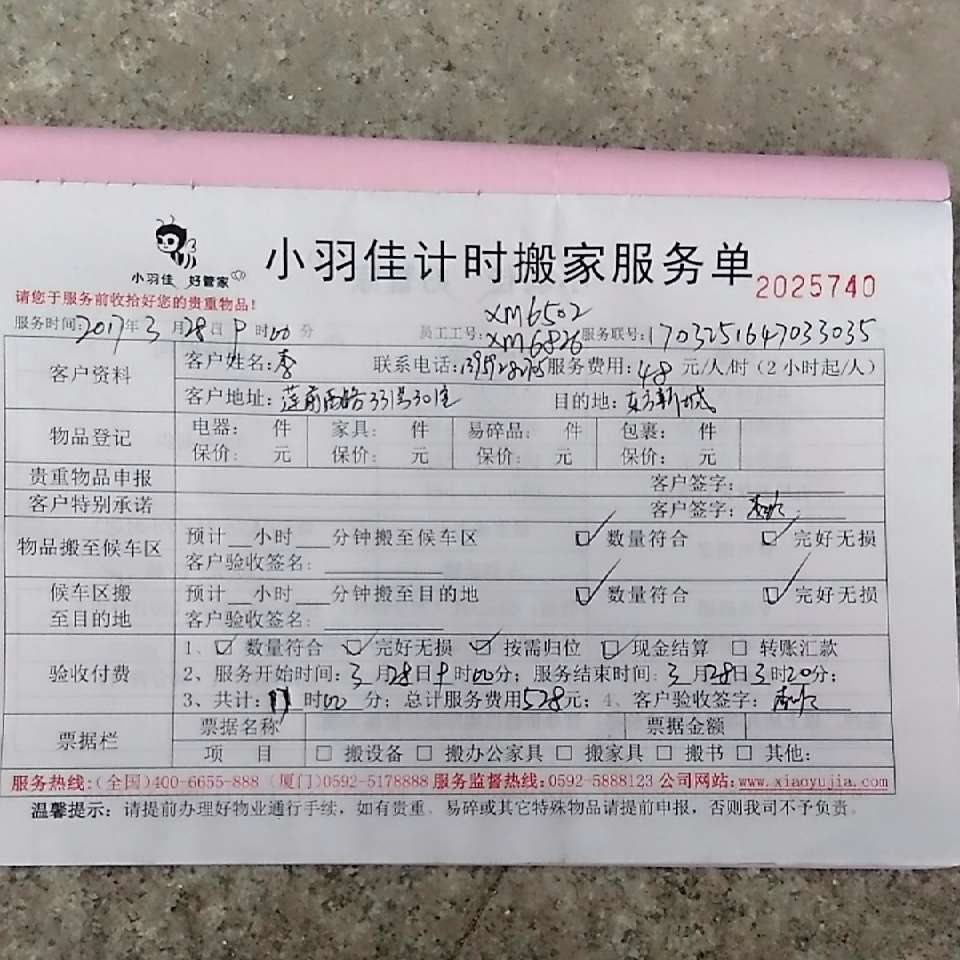 小羽佳 好管家
小羽佳计时搬家服务单 2025740
请您于服务前收拾好您的贵重物品!
服务时间:2017年3月28日 时00分 员工工号: XM6502 XM6826 服务联号:1703251647033035
客户资料 客户姓名:李 联系电话: 服务费用:48元/人/时(2小时起/人)
客户地址:莲前西路331号301室 目的地:东方新城
物品登记 电器: 件 家具: 件 易碎品: 件 包裹: 件
保价: 元 保价: 元 保价: 元 保价: 元
贵重物品申报 客户签字:
客户特别承诺 客户签字:
物品搬至候车区 预计__小时___分钟搬至候车区 ☑数量符合 ☑完好无损
客户验收签名:
候车区搬至目的地 预计__小时___分钟搬至目的地 ☑数量符合 ☑完好无损
客户验收签名:
验收付费 1、☑数量符合 ☑完好无损 ☑按需归位 ☑现金结算 □转账汇款
2、服务开始时间:3月28日 时00分;服务结束时间:3月28日3时20分;
3、共计:11时00分;总计服务费用528元;4、客户验收签字:
票据栏 票据名称 票据金额
项 目 □搬设备 □搬办公家具 □搬家具 □搬书 □其他:
服务热线:(全国)400-6655-888 (厦门)0592-5178888 服务监督热线:0592-5888123 公司网站:www.xiaoyujia.com
温馨提示:请提前办理好物业通行手续,如有贵重、易碎或其它特殊物品请提前申报,否则我司不予负责。